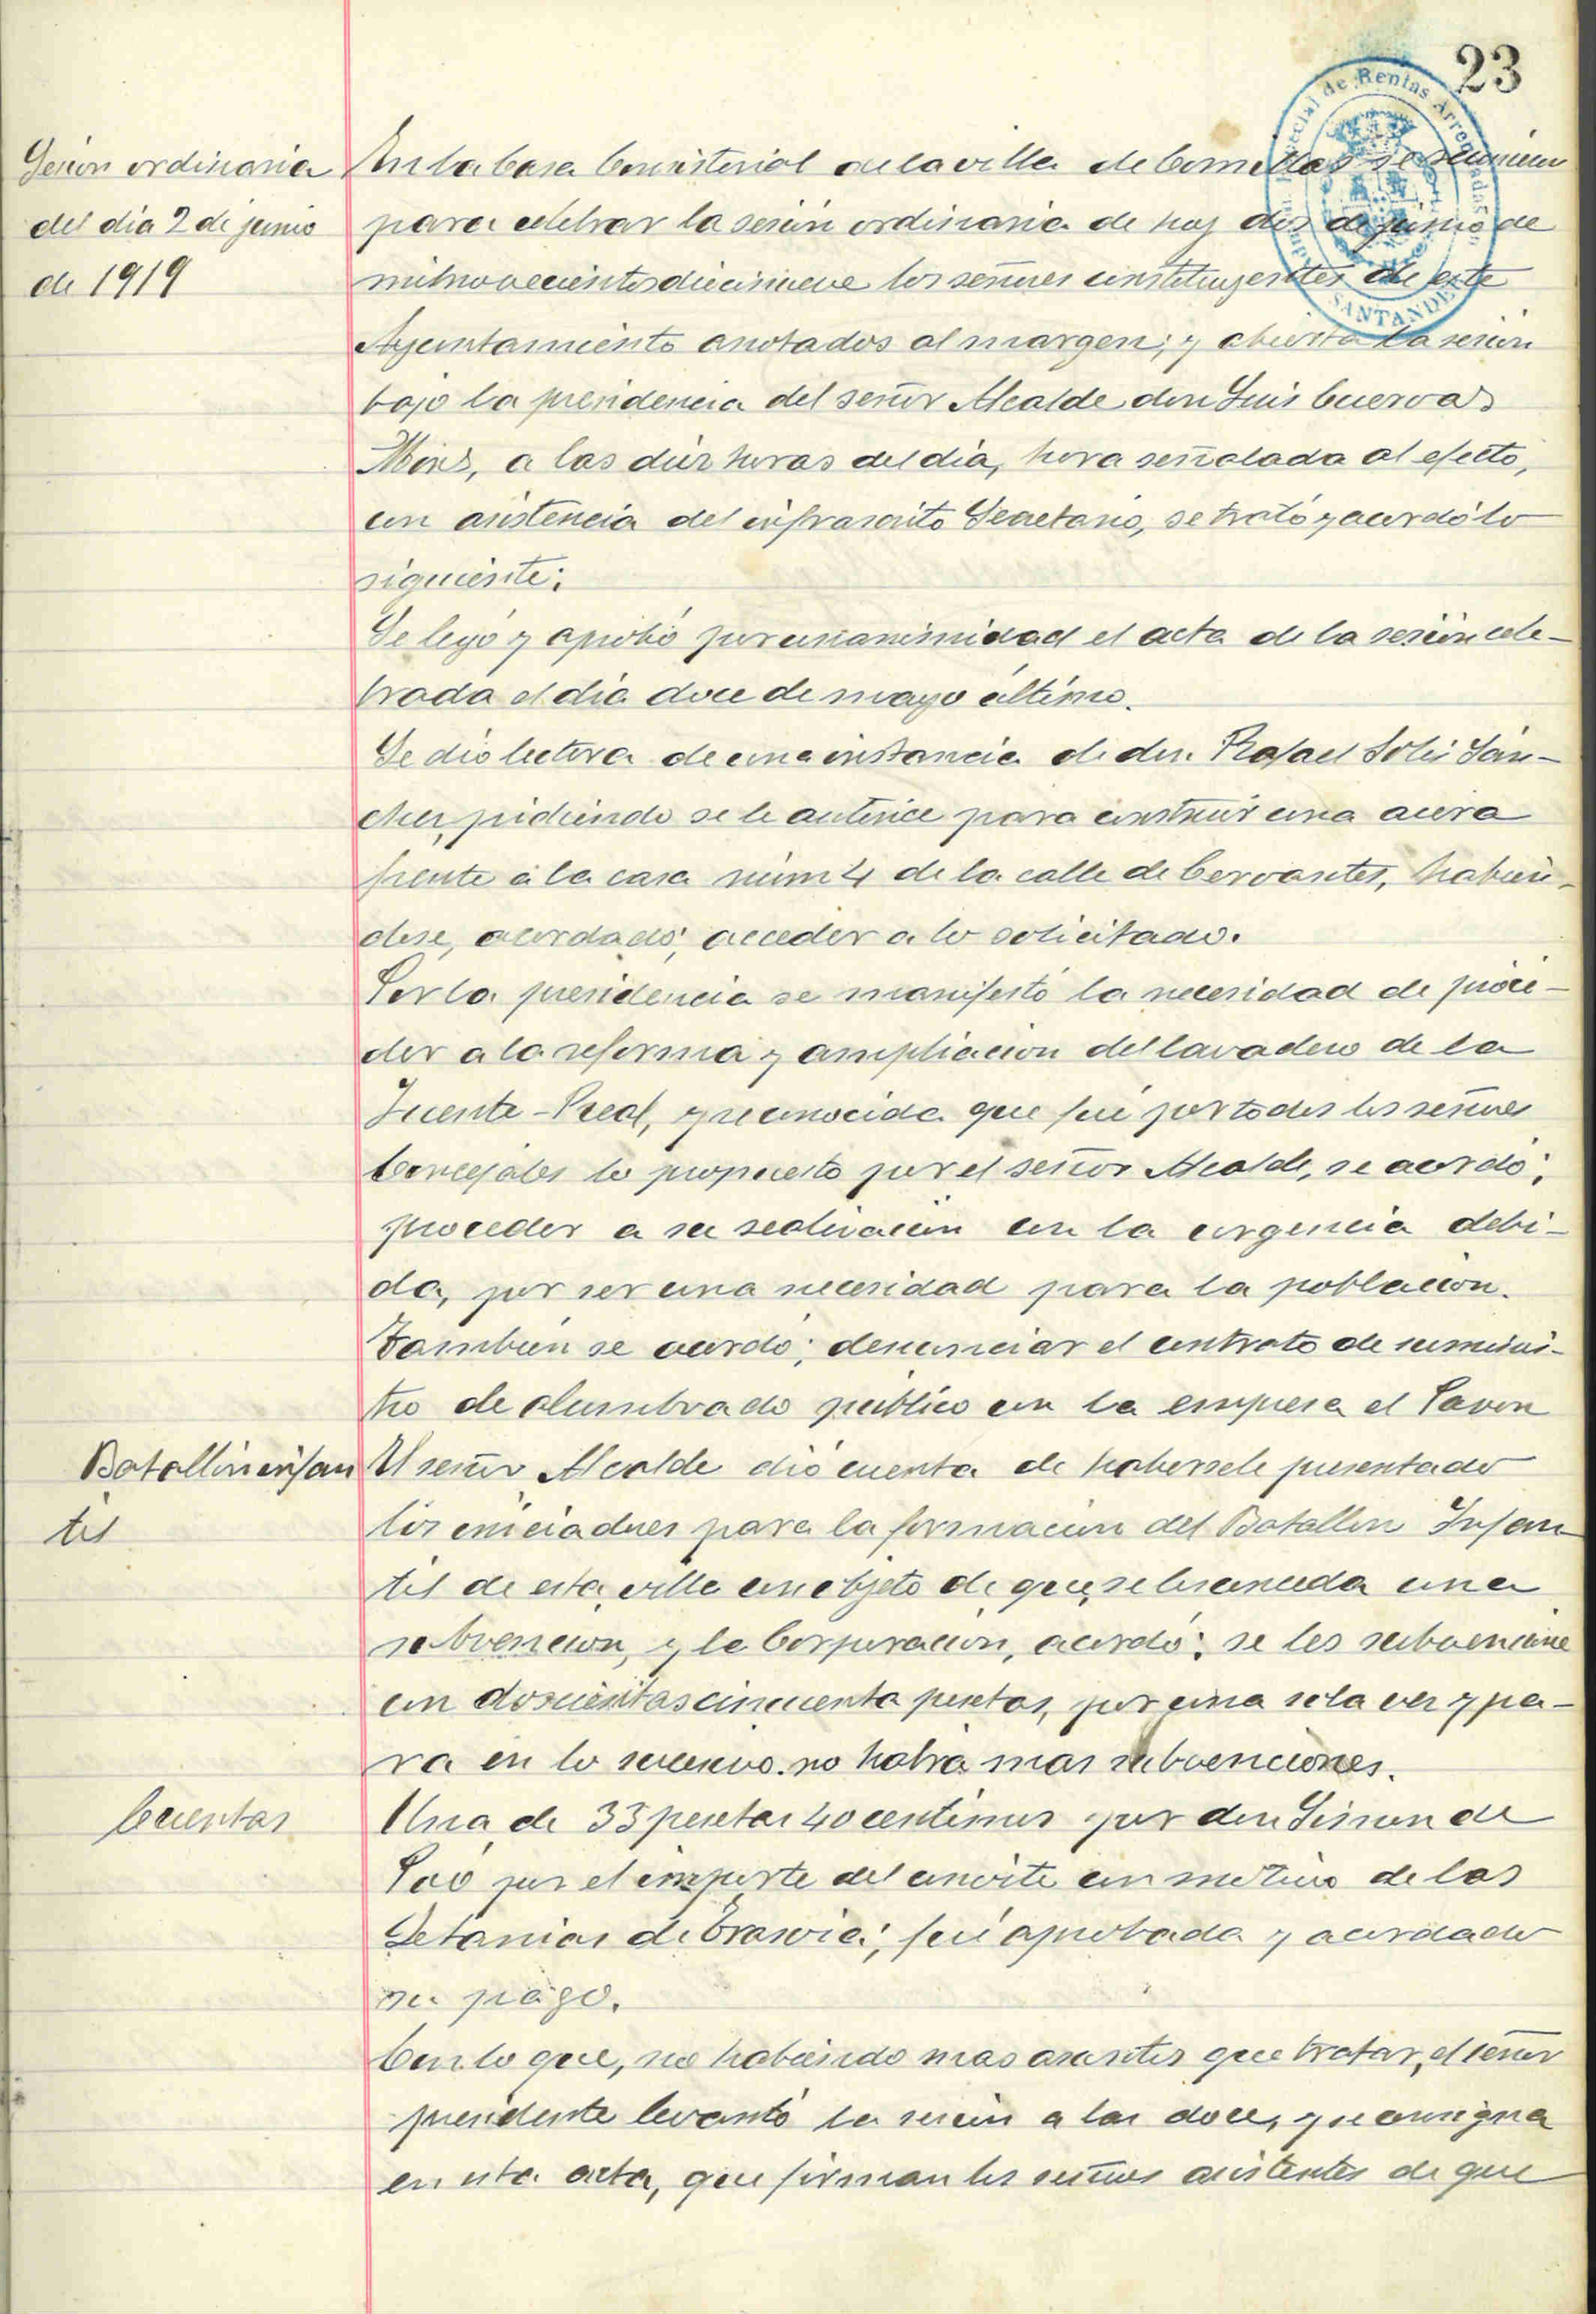 23
Sesion ordinaria
del dia 2 de junio
de 1919
En la Casa Consistorial de la villa de Comillas se reunieron
para celebrar la sesión ordinaria de hoy dos de junio de
mil novecientos diecinueve los señores constituyentes de este
Ayuntamiento anotados al margen; y abierta la sesión
bajo la presidencia del señor Alcalde don Luis Cuervas
Mons, a las diez horas del día, hora señalada al efecto,
con asistencia del infrascrito Secretario, se trató y acordó lo
siguiente:
Se leyó y aprobó por unanimidad el acta de la sesión cele-
brada el día doce de mayo último.
Se dio lectura de una instancia de don Rafael Solis Sán-
chez, pidiendo se le autorice para construir una acera
frente a la casa núm 4 de la calle de Cervantes, habien-
dose, acordado; acceder a lo solicitado.
Por la presidencia se manifestó la necesidad de proce-
der a la reforma y ampliacion del lavadero de la
Fuente-Real, y reconocida que fué por todos los señores
Concejales lo propuesto por el señor Alcalde, se acordó;
proceder a su realización con la urgencia debi-
da, por ser una necesidad para la poblacion.
Tambien se acordo; denunciar el contrato de suminis-
tro de alumbrado público con la empresa el Pavon
Batallón infan
til
El señor Alcalde dió cuenta de habersele presentado
los iniciadores para la formacion del Batallon Infan
til de esta villa con objeto de que, se les conceda una
subvencion, y la Corporacion, acordó; se les subvencione
con doscientas cincuenta pesetas, por una sola vez y pa-
ra en lo sucesivo no habrá mas subvenciones.
Cuentas
Una de 33 pesetas 40 centimos por don Simon de
Poo por el importe del convite con motivo de las
Letanias de; fué aprobada y acordado
su pago.
Con lo que, no habiendo mas asuntos que tratar, el señor
presidente levantó la sesión a las doce, y se consigna
en esta acta, que firman los señores asistentes de que
de Rentas Arrendadas
SANTANDER